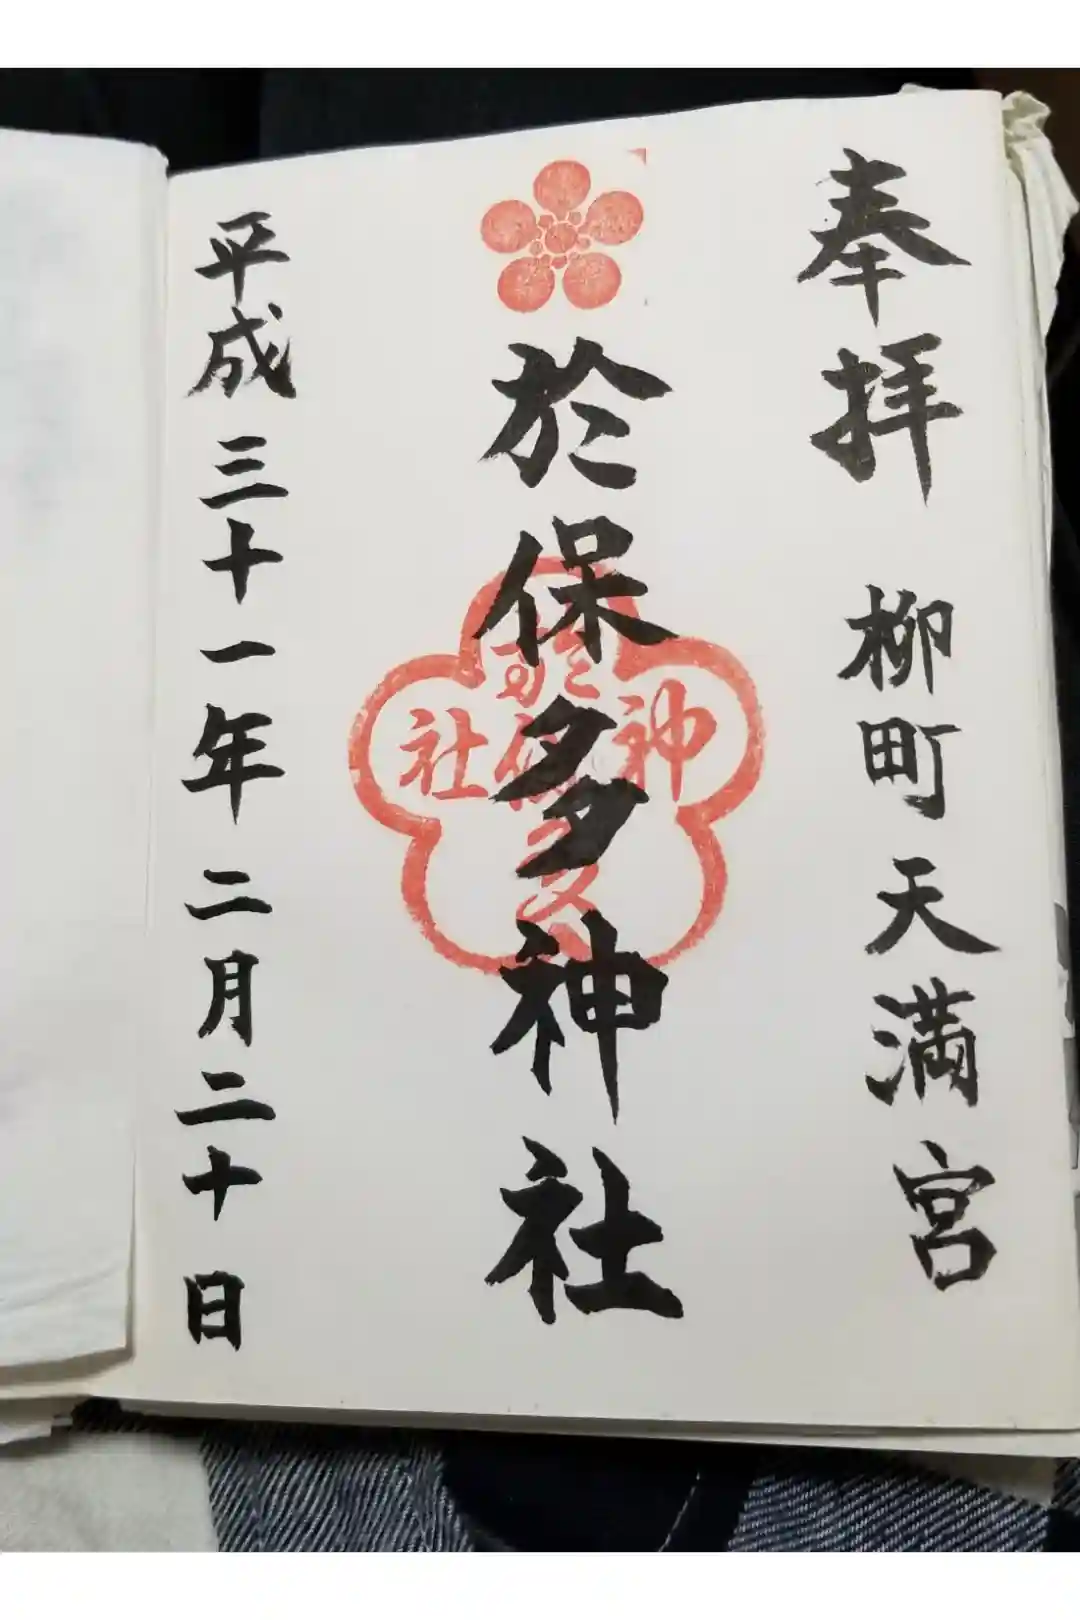 奉拝 柳町天満宮
於保多神社
於保多
神社
平成三十一年二月二十日